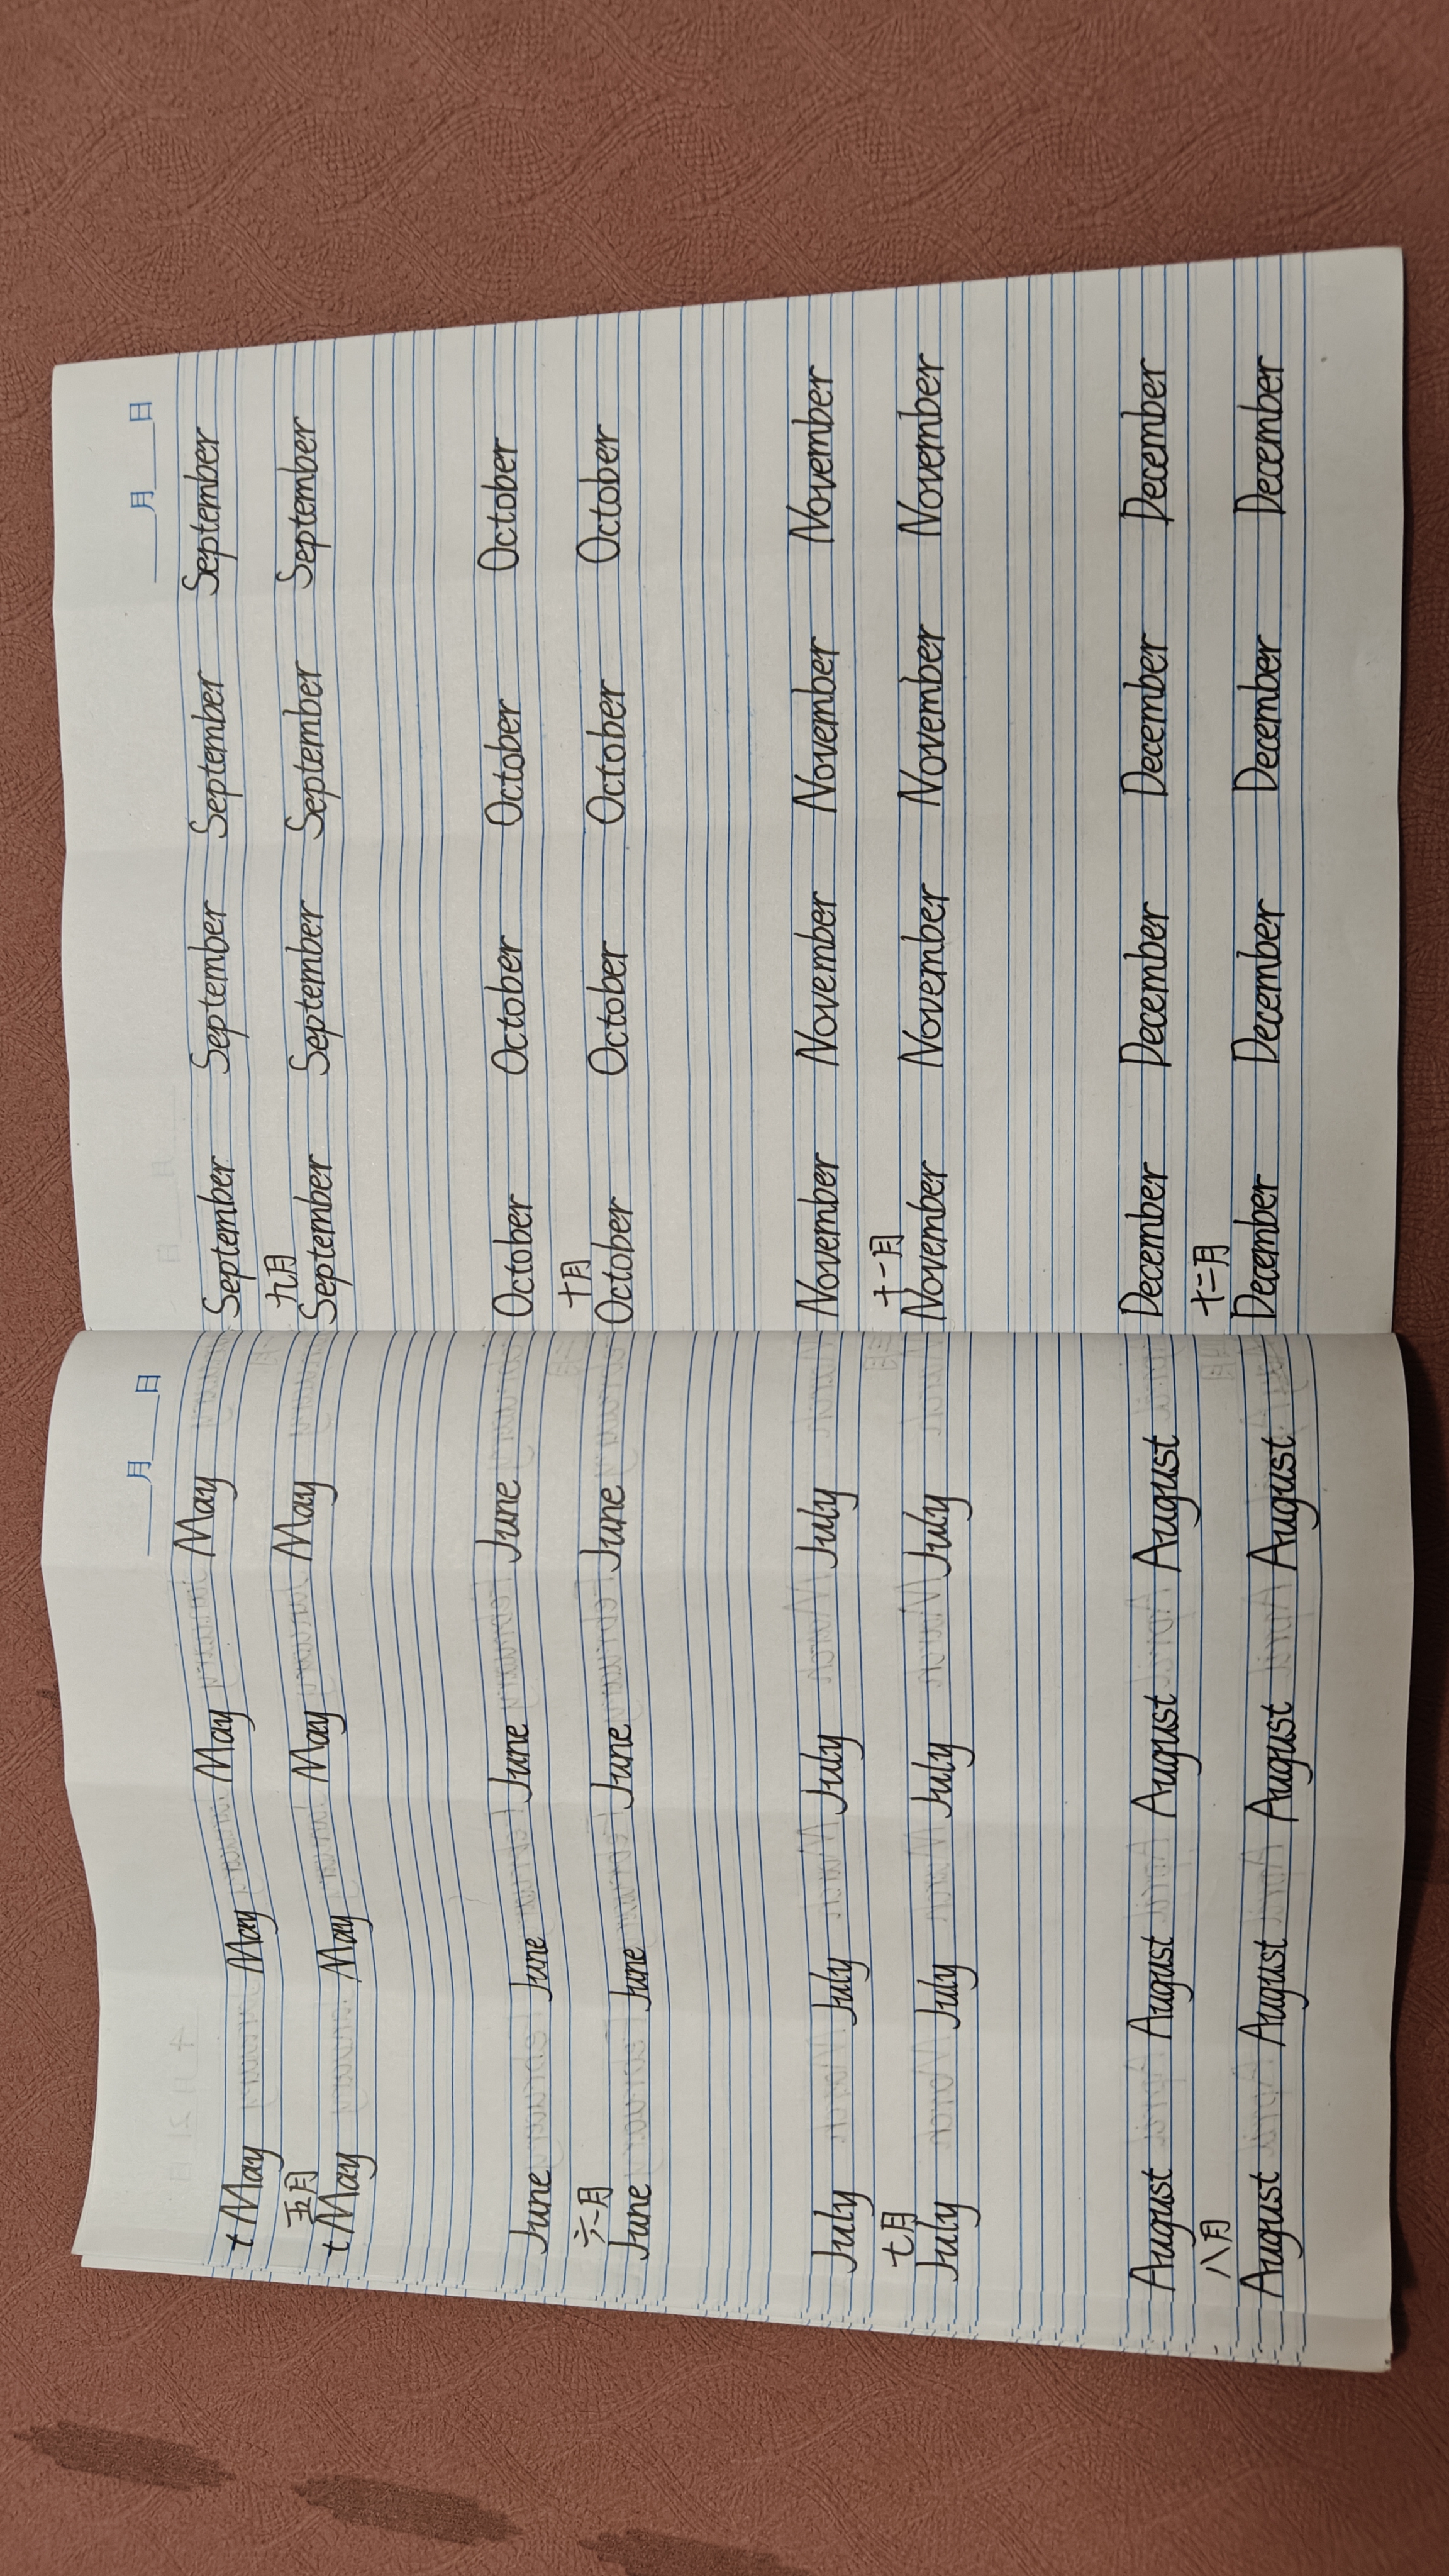 月 日
t May May May May
五月
t May May May May
June June June June
六月
June June June June
July July July July
七月
July July July July
August August August August
八月
August August August August
月 日
September September September September
九月
September September September September
October October October October
十月
October October October October
November November November November
十一月
November November November November
December December December December
十二月
December December December December